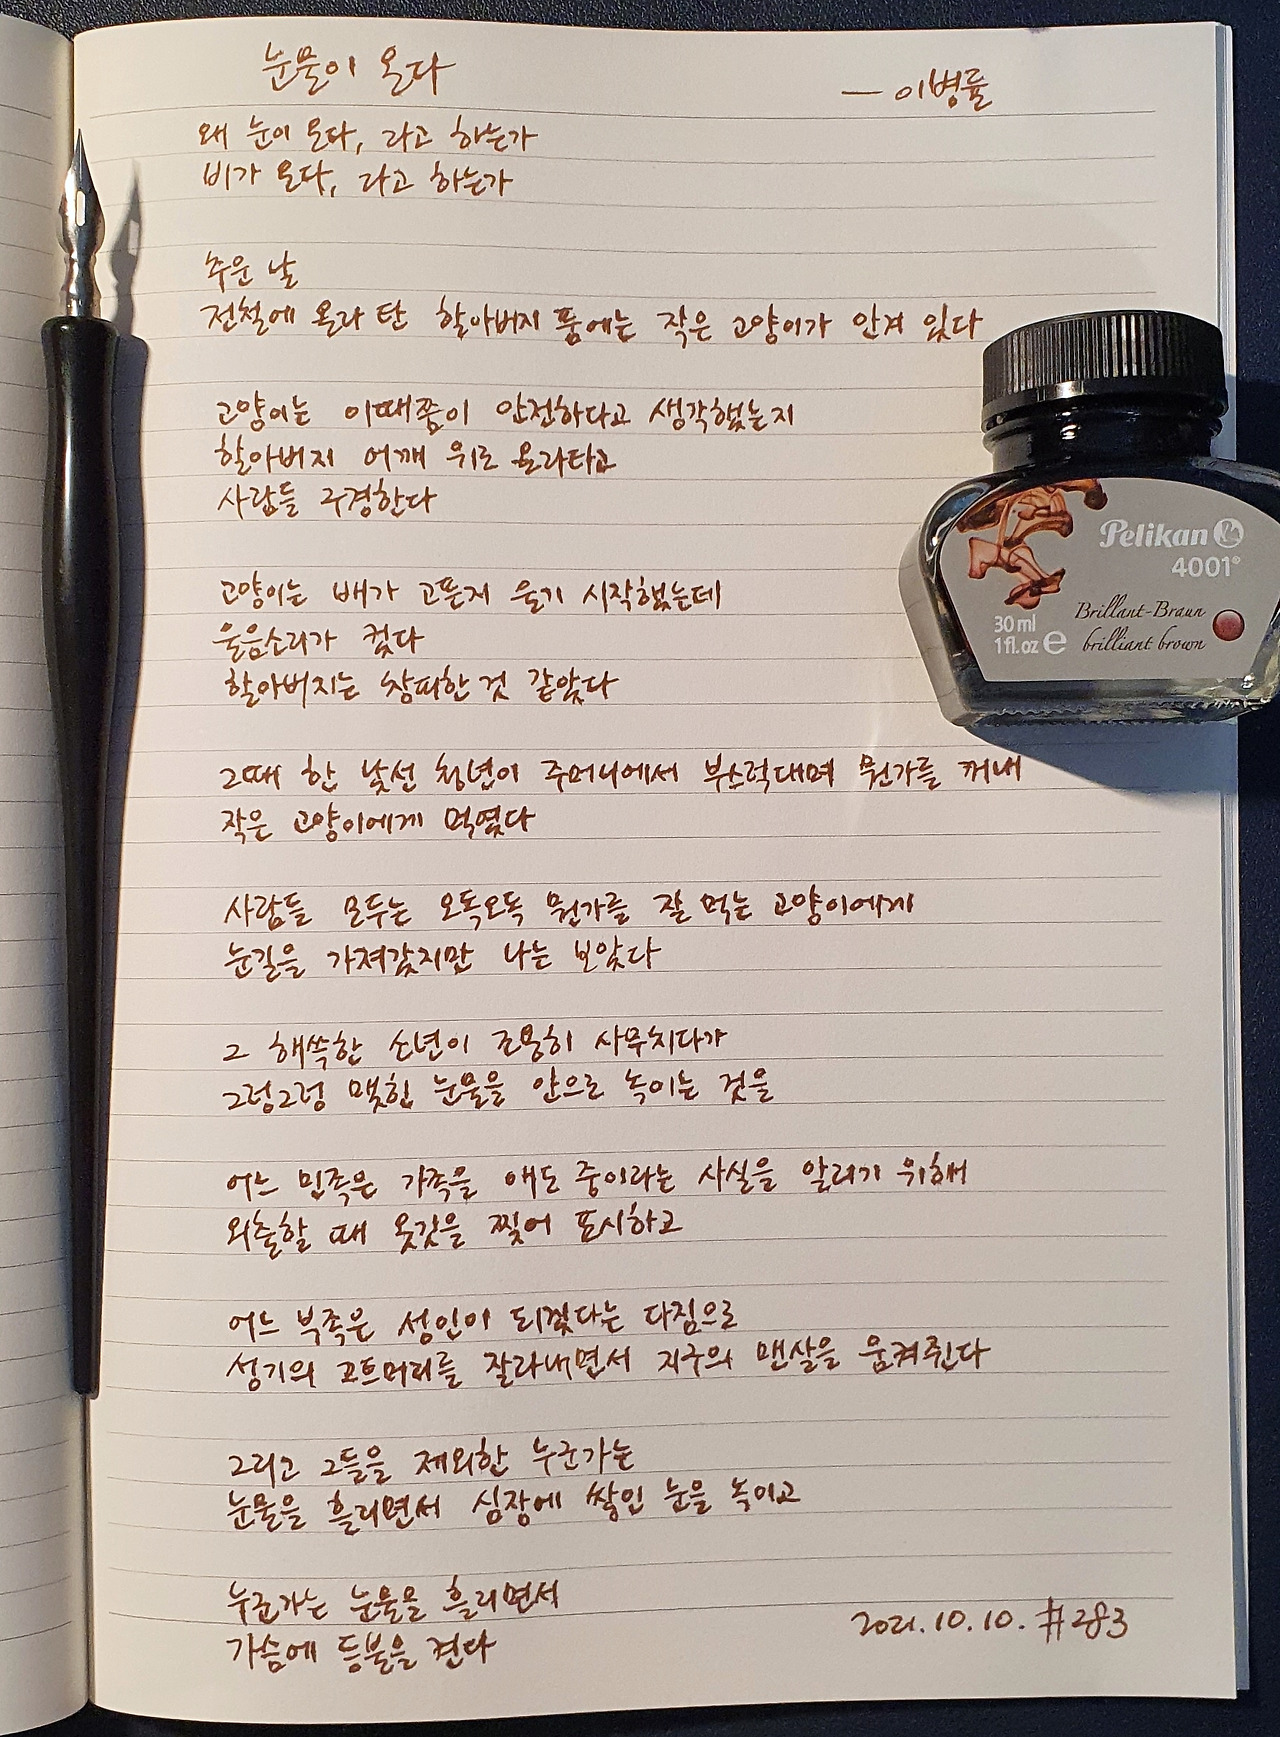 눈물이 온다
— 이병률
왜 눈이 온다, 라고 하는가
비가 온다, 라고 하는가
추운 날
전철에 올라 탄 할아버지 품에는 작은 고양이가 안겨 있다
고양이는 이때쯤이 안전하다고 생각했는지
할아버지 어깨 위로 올라타고
사람들 구경한다
고양이는 배가 고픈지 울기 시작했는데
울음소리가 컸다
할아버지는 창피한 것 같았다
그때 한 낯선 청년이 주머니에서 부스럭대며 뭔가를 꺼내
작은 고양이에게 먹였다
사람들 모두는 오독오독 뭔가를 잘 먹는 고양이에게
눈길을 가져갔지만 나는 보았다
그 해쓱한 소년이 조용히 사무치다가
그렁그렁 맺힌 눈물을 안으로 녹이는 것을
어느 민족은 가족을 애도 중이라는 사실을 알리기 위해
외출할 때 옷깃을 찢어 표시하고
어느 부족은 성인이 되겠다는 다짐으로
성기의 고트머리를 잘라내면서 지구의 맨살을 움켜쥔다
그리고 그들을 제외한 누군가는
눈물을 흘리면서 심장에 쌓인 눈을 녹이고
누군가는 눈물을 흘리면서
가슴에 등불을 켠다
2021.10.10. #283
Pelikan
4001®
Brillant-Braun
brilliant brown
30 ml
1 fl.oz e